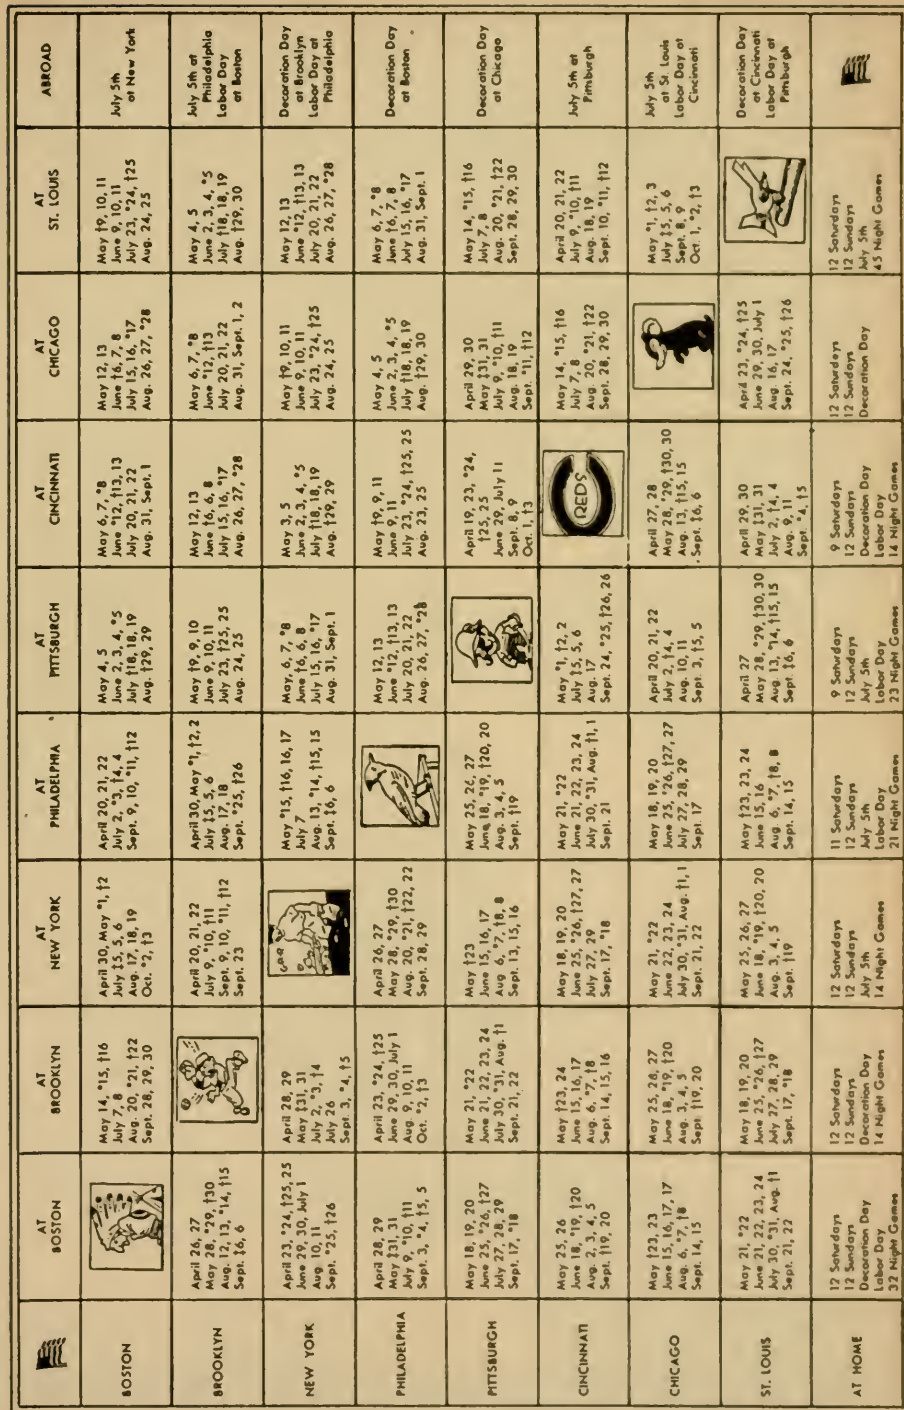 AT
BOSTON
AT
BROOKLYN
AT
NEW YORK
AT
PHILADELPHIA
AT
PITTSBURGH
AT
CINCINNATI
AT
CHICAGO
AT
ST. LOUIS
ABROAD
BOSTON
May 14, *15, †16
July 7, 8
Aug. 20, *21, †22
Sept. 28, 29, 30
April 30, May *1, †2
July ‡5, 5, 6
Aug. 17, 18, 19
Oct. *2, †3
April 20, 21, 22
July 2, *3, †4, 4
Sept. 9, 10, *11, †12
May 4, 5
June 2, 3, 4, *5
July †18, 18, 19
Aug. †29, 29
May 6, 7, *8
June *12, †13, 13
July 20, 21, 22
Aug. 31, Sept. 1
May 12, 13
June †6, 7, 8
July 15, 16, *17
Aug. 26, 27, *28
May †9, 10, 11
June 9, 10, 11
July 23, *24, †25
Aug. 24, 25
July 5th
at New York
BROOKLYN
April 26, 27
May 28, *29, †30
Aug. 12, 13, *14, †15
Sept. ‡6, 6
April 20, 21, 22
July 9, *10, †11
Sept. 9, 10, *11, †12
Sept. 23
April 30, May *1, †2, 2
July ‡5, 5, 6
Aug. 17, 18
Sept. *25, †26
May †9, 9, 10
June 9, 10, 11
July 23, †25, 25
Aug. 24, 25
May 12, 13
June †6, 6, 8
July 15, 16, *17
Aug. 26, 27, *28
May 6, 7, *8
June *12, †13
July 20, 21, 22
Aug. 31, Sept. 1, 2
May 4, 5
June 2, 3, 4, *5
July †18, 18, 19
Aug. †29, 30
July 5th at
Philadelphia
Labor Day
at Boston
NEW YORK
April 23, *24, †25, 25
June 29, 30, July 1
Aug. 10, 11
Sept. *25, †26
April 28, 29
May ‡31, 31
July 2, *3, †4
July 26
Sept. 3, *4, †5
May *15, †16, 16, 17
July 7
Aug. 13, *14, †15, 15
Sept. ‡6, 6
May, 6, 7, *8
June †6, 6, 8
July 15, 16, *17
Aug. 31, Sept. 1
May 3, 5
June 2, 3, 4, *5
July †18, 18, 19
Aug. †29, 29
May †9, 10, 11
June 9, 10, 11
July 23, *24, †25
Aug. 24, 25
May 12, 13
June *12, †13, 13
July 20, 21, 22
Aug. 26, 27, *28
Decoration Day
at Brooklyn
Labor Day at
Philadelphia
PHILADELPHIA
April 28, 29
May ‡31, 31
July 9, *10, †11
Sept. 3, *4, †5, 5
April 23, *24, †25
June 29, 30, July 1
Aug. 9, 10, 11
Oct. *2, †3
April 26, 27
May 28, *29, †30
Aug. 20, *21, †22, 22
Sept. 28, 29
May 12, 13
June *12, †13, 13
July 20, 21, 22
Aug. 26, 27, *28
May †9, 9, 11
June 9, 11
July 23, *24, †25, 25
Aug. 23, 25
May 4, 5
June 2, 3, 4, *5
July †18, 18, 19
Aug. †29, 30
May 6, 7, *8
June †6, 7, 8
July 15, 16, *17
Aug. 31, Sept. 1
Decoration Day
at Boston
PITTSBURGH
May 18, 19, 20
June 25, *26, †27
July 27, 28, 29
Sept. 17, *18
May 21, *22
June 21, 22, 23, 24
July 30, *31, Aug. †1
Sept. 21, 22
May †23
June 15, 16, 17
Aug. 6, *7, †8, 8
Sept. 13, 15, 16
May 25, 26, 27
June 18, *19, †20, 20
Aug. 3, 4, 5
Sept. †19
April 19, 23, *24,
†25, 25
June 29, July 11
Sept. 8, 9
Oct. 1, †3
April 29, 30
May ‡31, 31
July 9, *10, †11
Aug. 18, 19
Sept. *11, †12
May 14, *15, †16
July 7, 8
Aug. 20, *21, †22
Sept. 28, 29, 30
Decoration Day
at Chicago
CINCINNATI
May 25, 26
June 18, *19, †20
Aug. 2, 3, 4, 5
Sept. †19, 20
May †23, 24
June 15, 16, 17
Aug. 6, *7, †8
Sept. 14, 15, 16
May 18, 19, 20
June 25, *26, †27, 27
July 27, 29
Sept. 17, *18
May 21, *22
June 21, 22, 23, 24
July 30, *31, Aug. †1, 1
Sept. 21
May *1, †2, 2
July ‡5, 5, 6
Aug. 17
Sept. 24, *25, †26, 26
REDS
May 14, *15, †16
July 7, 8
Aug. 20, *21, †22
Sept. 28, 29, 30
April 20, 21, 22
July 9, *10, †11
Aug. 18, 19
Sept. 10, *11, †12
July 5th at
Pittsburgh
CHICAGO
May †23, 23
June 15, 16, 17
Aug. 6, *7, †8
Sept. 14, 15
May 25, 26, 27
June 18, *19, †20
Aug. 3, 4, 5
Sept †19, 20
May 21, *22
June 22, 23, 24
July 30, *31, Aug. †1, 1
Sept. 21, 22
May 18, 19, 20
June 25, *26, †27, 27
July 27, 28, 29
Sept. 17
April 20, 21, 22
July 2, †4, 4
Aug. 10, 11
Sept. 3, †5, 5
April 27, 28
May 28, *29, †30, 30
Aug. 13, †15, 15
Sept. ‡6, 6
May *1, †2, 3
July ‡5, 5, 6
Sept. 8, 9
Oct. 1, *2, †3
July 5th
at St. Louis
Labor Day at
Cincinnati
ST. LOUIS
May 21, *22
June 21, 22, 23, 24
July 30, *31, Aug. †1
Sept. 21, 22
May 18, 19, 20
June 25, *26, †27
July 27, 28, 29
Sept. 17, *18
May 25, 26, 27
June 18, *19, †20, 20
Aug. 3, 4, 5
Sept. †19
May †23, 23, 24
June 15, 16
Aug. 6, *7, †8, 8
Sept. 14, 15
April 27
May 28, *29, †30, 30
Aug. 13, *14, †15, 15
Sept. ‡6, 6
April 29, 30
May ‡31, 31
July 2, †4, 4
Aug. 9, 11
Sept. *4, †5
April 23, *24, †25
June 29, 30, July 1
Aug. 16, 17
Sept. 24, *25, †26
Decoration Day
at Cincinnati
Labor Day at
Pittsburgh
AT HOME
12 Saturdays
12 Sundays
Decoration Day
Labor Day
32 Night Games
12 Saturdays
12 Sundays
Decoration Day
14 Night Games
12 Saturdays
12 Sundays
July 5th
14 Night Games
11 Saturdays
12 Sundays
July 5th
Labor Day
21 Night Games
9 Saturdays
12 Sundays
July 5th
Labor Day
23 Night Games
9 Saturdays
12 Sundays
Decoration Day
Labor Day
14 Night Games
12 Saturdays
12 Sundays
Decoration Day
12 Saturdays
12 Sundays
July 5th
45 Night Games